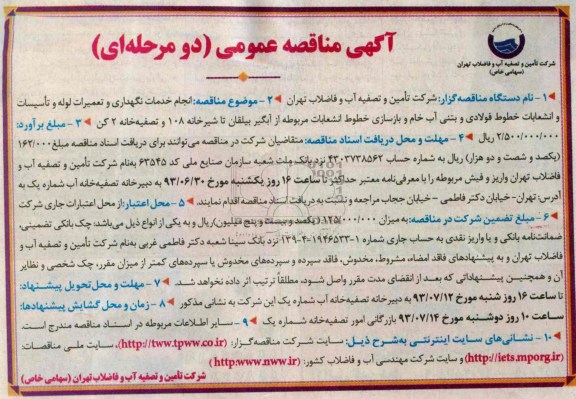 آگهی مناقصه عمومی (دو مرحله‌ای)
شرکت تأمین و تصفیه آب و فاضلاب تهران
(سهامی خاص)
۱- نام دستگاه مناقصه‌گزار: شرکت تأمین و تصفیه آب و فاضلاب تهران ۲- موضوع مناقصه: انجام خدمات نگهداری و تعمیرات لوله و تأسیسات
و انشعابات خطوط فولادی و بتنی آب خام و بازسازی خطوط انشعابات مربوطه از آبگیر بیلقان تا شیرخانه ۱۰۸ و تصفیه‌خانه ۲ کن ۳- مبلغ برآورد:
۲/۵۰۰/۰۰۰/۰۰۰ ریال ۴- مهلت و محل دریافت اسناد مناقصه: متقاضیان شرکت در مناقصه می‌توانند برای دریافت اسناد مناقصه مبلغ ۱۶۲/۰۰۰
(یکصد و شصت و دو هزار) ریال به شماره حساب ۴۳۰۲۷۳۸۵۶۲ نزد بانک ملت شعبه سازمان صنایع ملی کد ۶۳۵۴۵ به‌نام شرکت تأمین و تصفیه آب و
فاضلاب تهران واریز و فیش مربوطه را با معرفی‌نامه معتبر حداکثر تا ساعت ۱۶ روز یکشنبه مورخ ۹۳/۰۶/۳۰ به دبیرخانه تصفیه‌خانه آب شماره یک به
آدرس: تهران-خیابان دکتر فاطمی - خیابان حجاب مراجعه و نسبت به دریافت اسناد مناقصه اقدام نمایند. ۵- محل اعتبار: از محل اعتبارات جاری شرکت
۶- مبلغ تضمین شرکت در مناقصه: به میزان ۱۲۵/۰۰۰/۰۰۰ (یکصد و بیست و پنج میلیون) ریال و به یکی از انواع ذیل می‌باشد: چک بانکی تضمینی،
ضمانت‌نامه بانکی و یا واریز نقدی به حساب جاری شماره ۱-۱۹۴۶۵۳۳-۴-۱۳۹ نزد بانک سینا شعبه دکتر فاطمی غربی به‌نام شرکت تأمین و تصفیه آب و
فاضلاب تهران و به پیشنهادهای فاقد امضاء، مشروط، مخدوش، فاقد سپرده و سپرده‌های مخدوش یا سپرده‌های کمتر از میزان مقرر، چک شخصی و نظایر
آن و همچنین پیشنهاداتی که بعد از انقضای مدت مقرر واصل شود، مطلقاً ترتیب اثر داده نخواهد شد. ۷- مهلت و محل تحویل پیشنهاد:
تا ساعت ۱۶ روز شنبه مورخ ۹۳/۰۷/۱۲ به دبیرخانه تصفیه‌خانه آب شماره یک این شرکت به نشانی مذکور ۸- زمان و محل گشایش پیشنهادها:
ساعت ۱۰ روز دوشنبه مورخ ۹۳/۰۷/۱۴ بازرگانی امور تصفیه‌خانه شماره یک ۹- سایر اطلاعات مربوطه در اسناد مناقصه مندرج است.
۱۰- نشانی‌های سایت اینترنتی به‌شرح ذیل: سایت شرکت مناقصه‌گزار: (http://tww.tpww.co.ir)، سایت ملی مناقصات:
(http://iets.mporg.ir) و سایت شرکت مهندسی آب و فاضلاب کشور: (http:www.nww.ir)
شرکت تأمین و تصفیه آب و فاضلاب تهران (سهامی خاص)